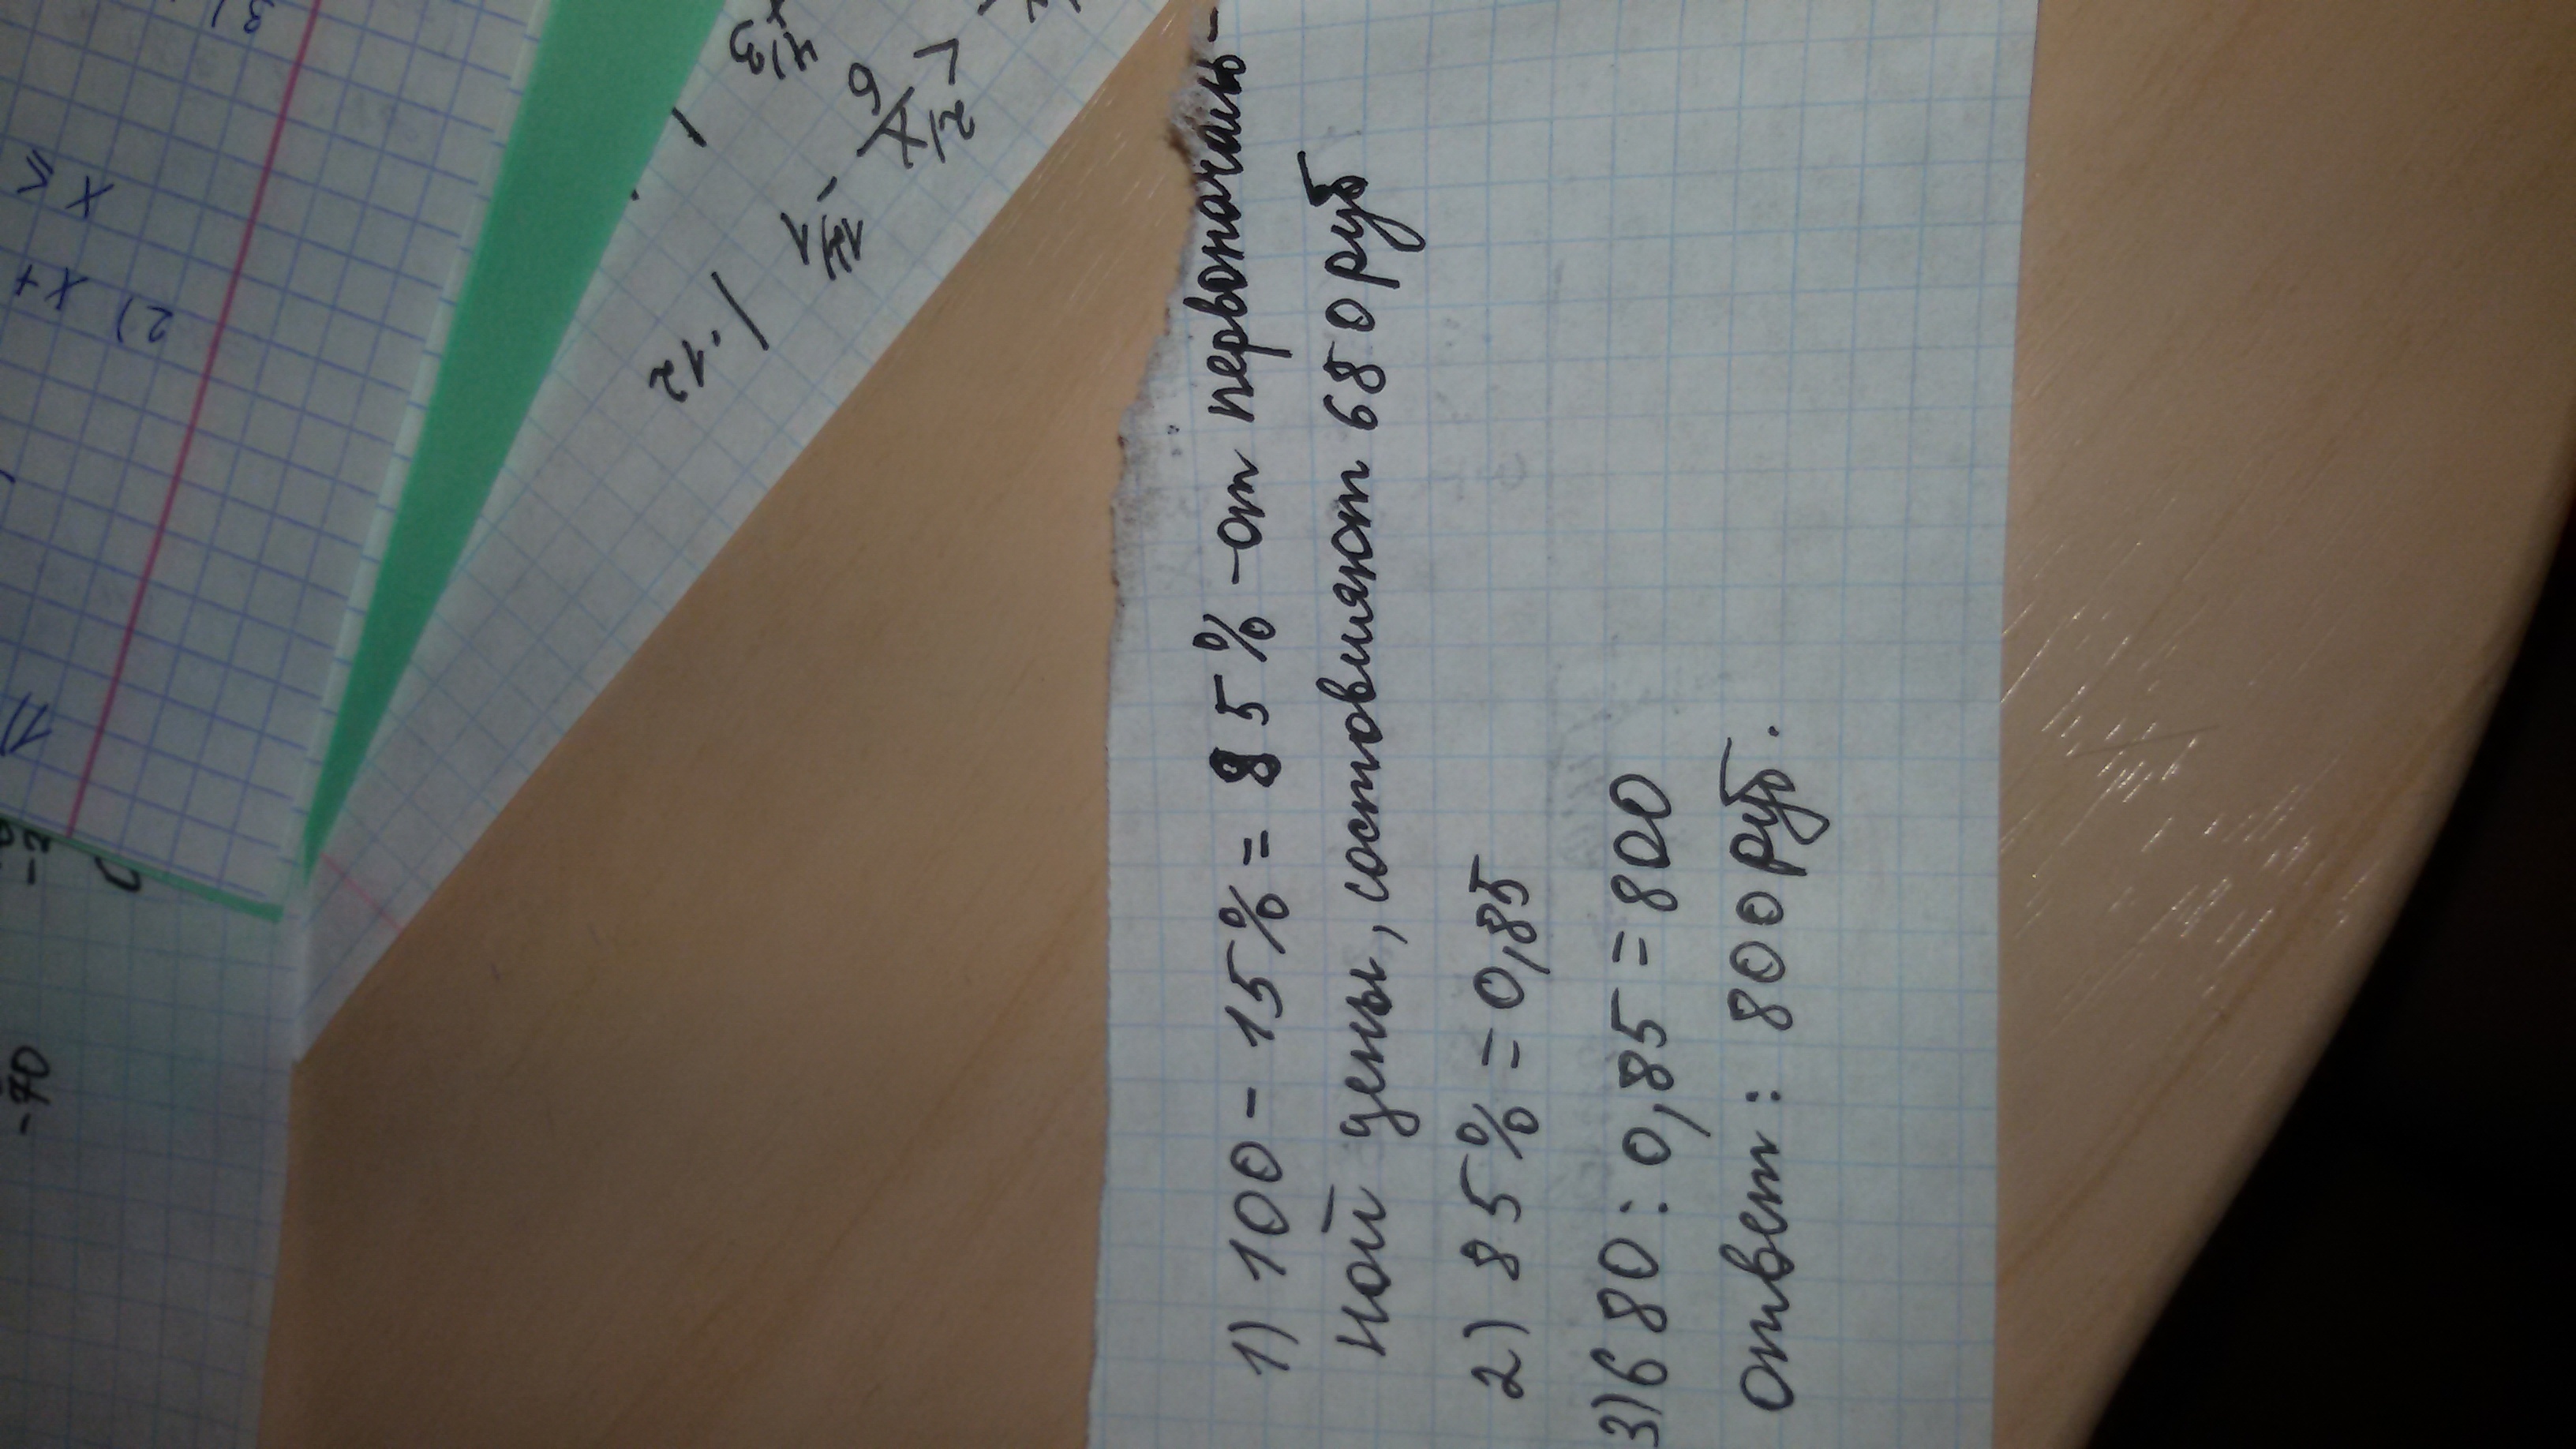 1) 100 - 15% = 85% - от первоначаль-
ной цены, состовляют 680 руб
2) 85% = 0,85
3) 680 : 0,85 = 800
Ответ: 800 руб.
2) x +
x ≤
1)
-70
1 · 12